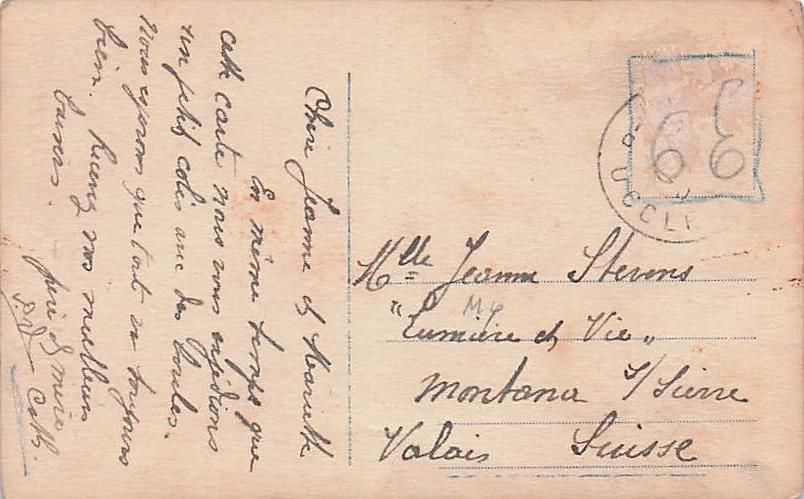 Chère Jeanne et Mariette
En même temps que
cette carte nous vous expédions
un petit colis avec des boules.
Nous espérons que tout va toujours
bien. Recevez nos meilleurs
baisers.
père et mère
Cath.
Mlle Jeanne Stevens
"Lumière et Vie"
Montana s/Sierre
Valais Suisse
UCCLE
66